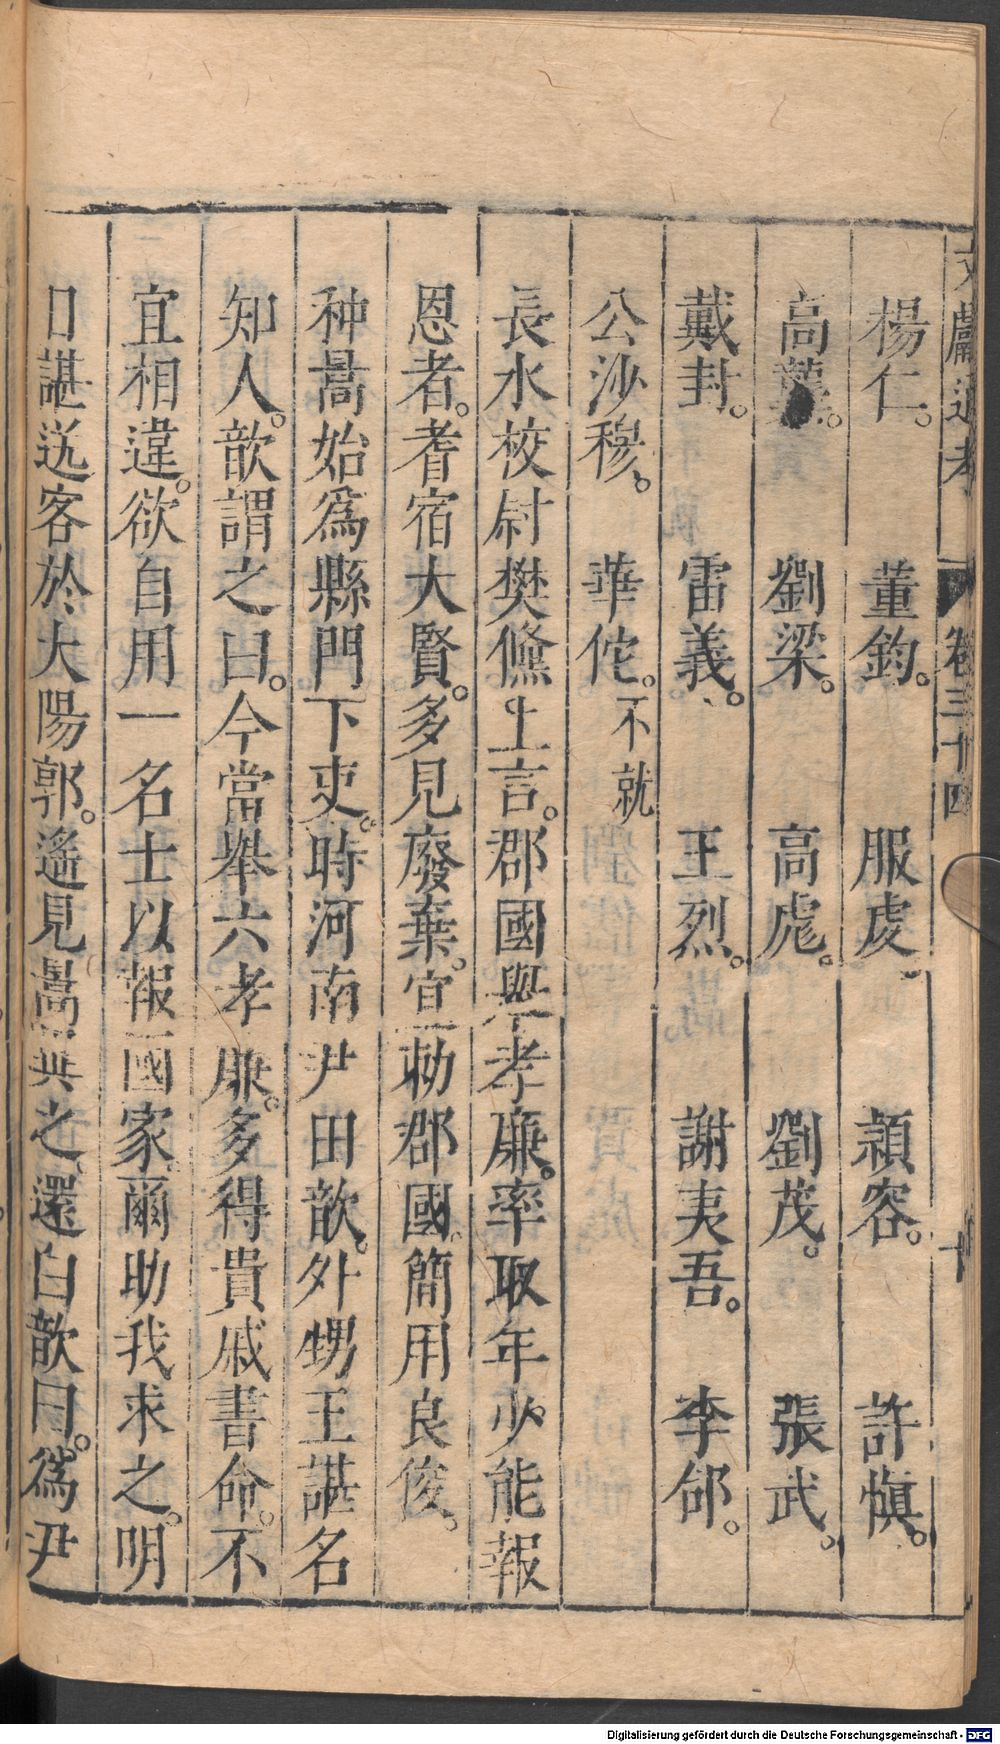 文獻通考 卷三十四 十
楊仁。 董鈞。 服虔 頴容。 許愼。
高 劉梁。 高彪。 劉茂。 張武。
戴封。 雷義。 王烈。 謝夷吾。 李郃。
公沙穆。 華佗。不就
長水校尉樊鯈上言。郡國舉孝廉。率取年少能報
恩者。耆宿大賢。多見廢棄。宜勑郡國。簡用良俊。
种暠始爲縣門下吏。時河南尹田歆。外甥王諶名
知人。歆謂之曰。今當舉六孝廉。多得貴戚書命。不
宜相違。欲自用一名士以報國家。爾助我求之。明
日諶送客於大陽郭。遙見暠異之。還白歆曰。爲尹
Digitalisierung gefördert durch die Deutsche Forschungsgemeinschaft - DFG